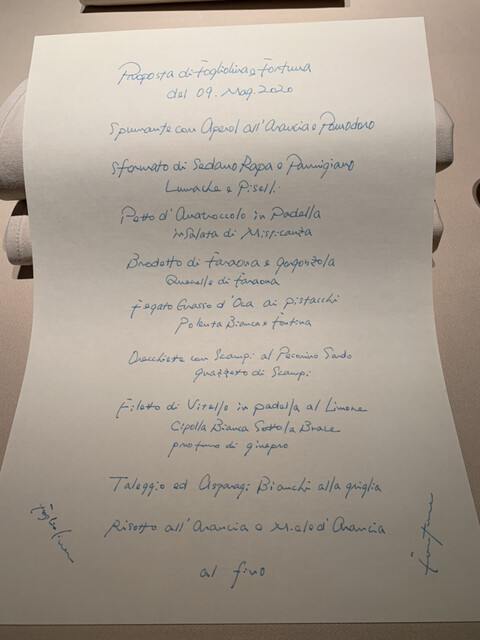 Proposta di Fogliolina e Fortuna
del 09. Mag. 2020
Spumante con Aperol all'Arancia e Pomodoro
Sformato di Sedano Rapa e Parmigiano
Lumache e Piselli
Petto d'Anatroccolo in Padella
insalata di Misticanza
Brodetto di Faraona e gorgonzola
Quenelle di Faraona
Fegato Grasso d'Oca ai Pistacchi
Polenta Bianca e Fontina
Orecchiette con Scampi al Pecorino Sardo
guazzetto di Scampi
Filetto di Vitello in padella al Limone
Cipolla Bianca Sotto la Brace
profumo di ginepro
Taleggio ed Asparagi Bianchi alla griglia
Risotto all'Arancia e Miele d'Arancia
al fino
Fogliolina
Fortuna